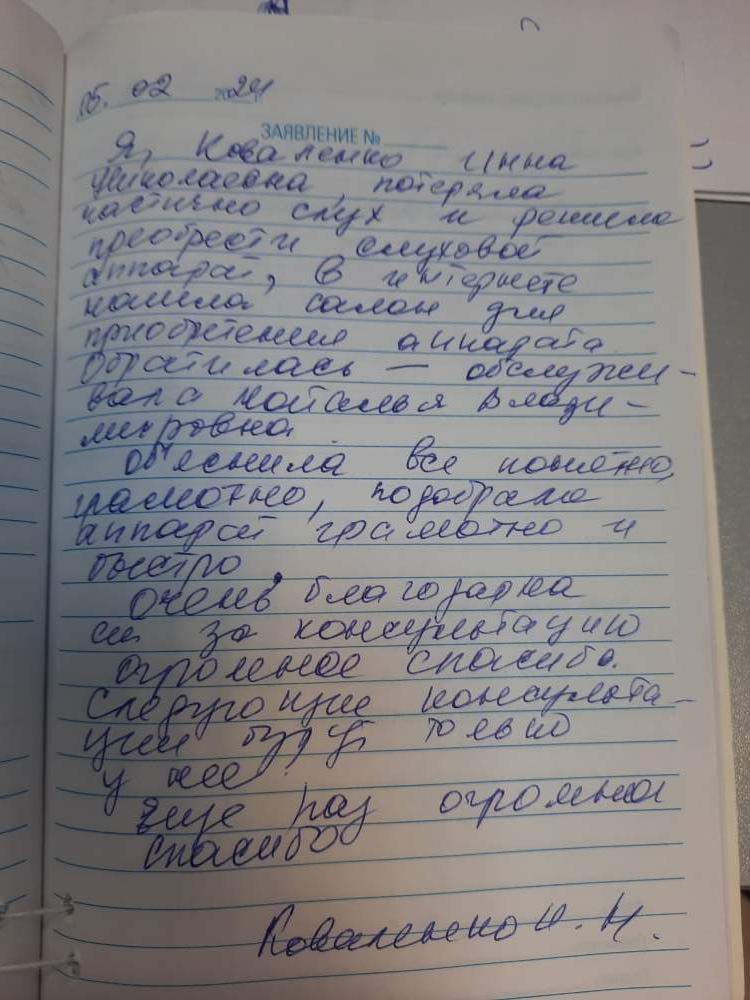 05. 02 2024
ЗАЯВЛЕНИЕ №
Я, Коваленко Инна
Николаевна, потеряла
частично слух и решила
преобрести слуховой
аппарат, в интернете
нашла салон для
приобретения аппарата
Обратилась — обслужи-
вала Наталья Влади-
мировна
Объяснила все понятно,
грамотно, подобрала
аппарат грамотно и
быстро.
Очень благодарна
ей за консультацию
огромное спасибо.
Следующие консульта-
ции будут только
у нее!
Еще раз огромное
спасибо
Коваленко И. Н.